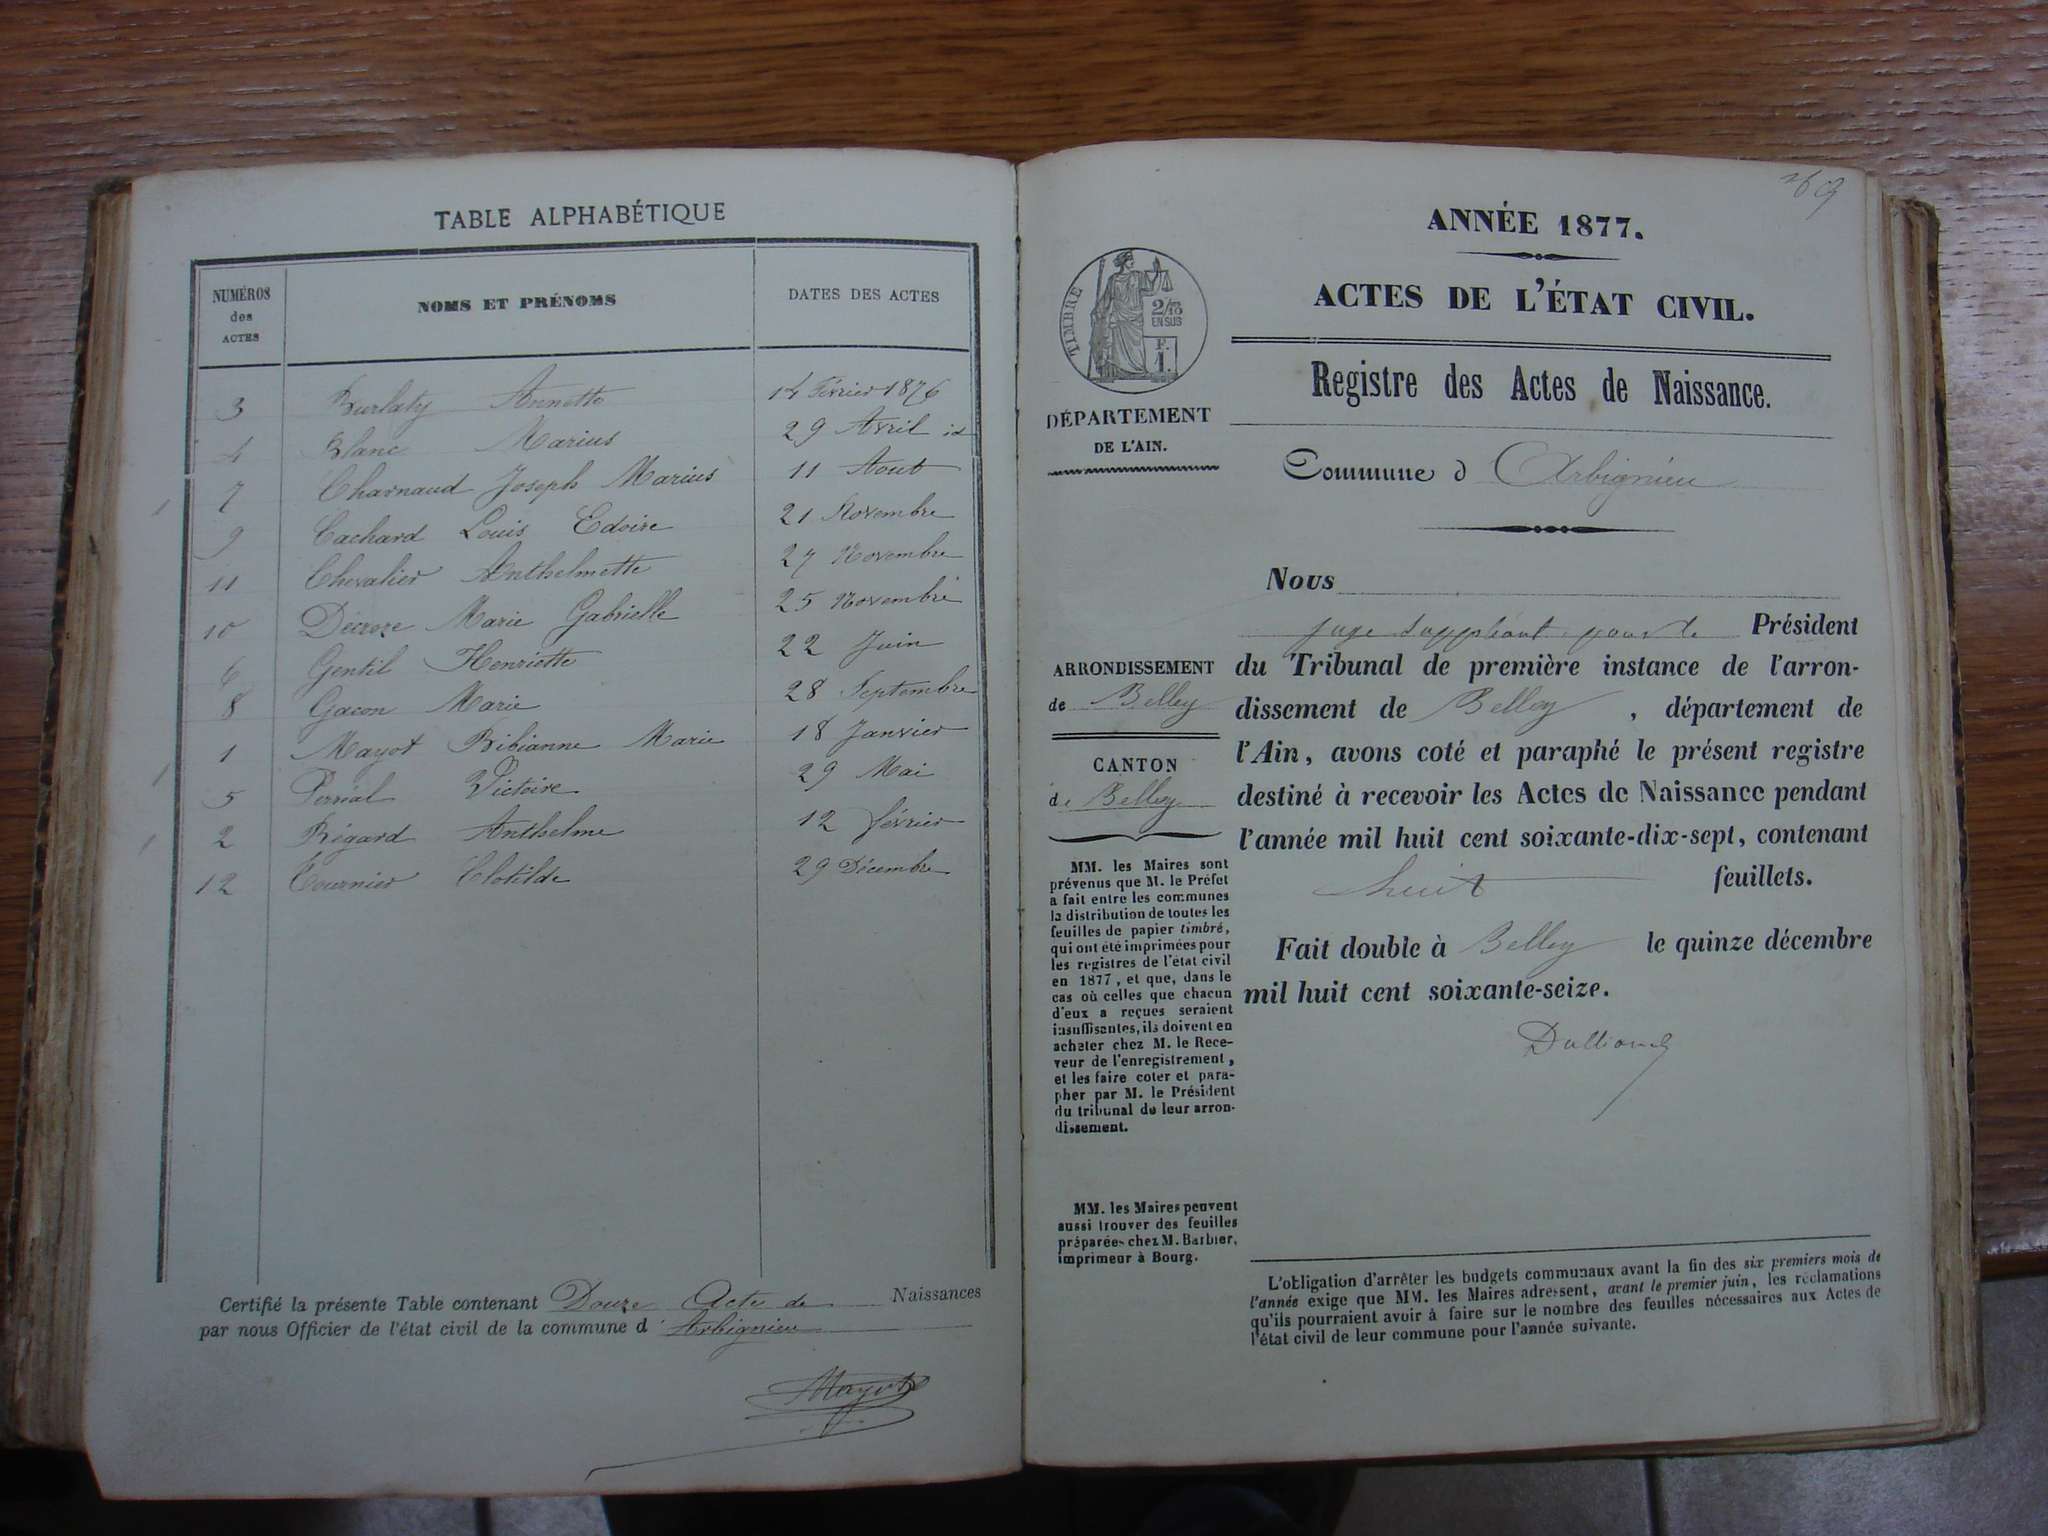 TABLE ALPHABÉTIQUE
NUMÉROS des ACTES
NOMS ET PRÉNOMS
DATES DES ACTES
3 Burlaty Annette 14 Février 1876
4 Blanc Marius 29 Avril id
7 Charnaud Joseph Marius 11 Aout
9 Cachard Louis Edoire 21 Novembre
11 Chevalier Anthelmette 27 Novembre
10 Décroze Marie Gabrielle 25 Novembre
6 Gentil Henriette 22 Juin
8 Gacon Marie 28 Septembre
1 Mayot Bibianne Marie 18 Janvier
5 Perréal Victoire 29 Mai
2 Régard Anthelme 12 février
12 Tournier Clotilde 29 Décembre
Certifié la présente Table contenant Douze Actes de Naissances
par nous Officier de l'état civil de la commune d' Arbignieu
Mayot
269
ANNÉE 1877.
ACTES DE L'ÉTAT CIVIL.
TIMBRE
2/10
EN SUS
F.
1.
Registre des Actes de Naissance.
DÉPARTEMENT
DE L'AIN.
Commune d Arbignieu
Nous
juge suppléant pour le Président
du Tribunal de première instance de l'arron-
dissement de Belley, département de
l'Ain, avons coté et paraphé le présent registre
destiné à recevoir les Actes de Naissance pendant
l'année mil huit cent soixante-dix-sept, contenant
huit feuillets.
Fait double à Belley le quinze décembre
mil huit cent soixante-seize.
ARRONDISSEMENT
de Belley
CANTON
de Belley
MM. les Maires sont
prévenus que M. le Préfet
a fait entre les communes
la distribution de toutes les
feuilles de papier timbré,
qui ont été imprimées pour
les registres de l'état civil
en 1877, et que, dans le
cas où celles que chacun
d'eux a reçues seraient
insuffisantes, ils doivent en
acheter chez M. le Rece-
veur de l'enregistrement,
et les faire coter et para-
pher par M. le Président
du tribunal de leur arron-
dissement.
MM. les Maires peuvent
aussi trouver des feuilles
préparées chez M. Barbier,
imprimeur à Bourg.
L'obligation d'arrêter les budgets communaux avant la fin des six premiers mois de
l'année exige que MM. les Maires adressent, avant le premier juin, les réclamations
qu'ils pourraient avoir à faire sur le nombre des feuilles nécessaires aux Actes de
l'état civil de leur commune pour l'année suivante.